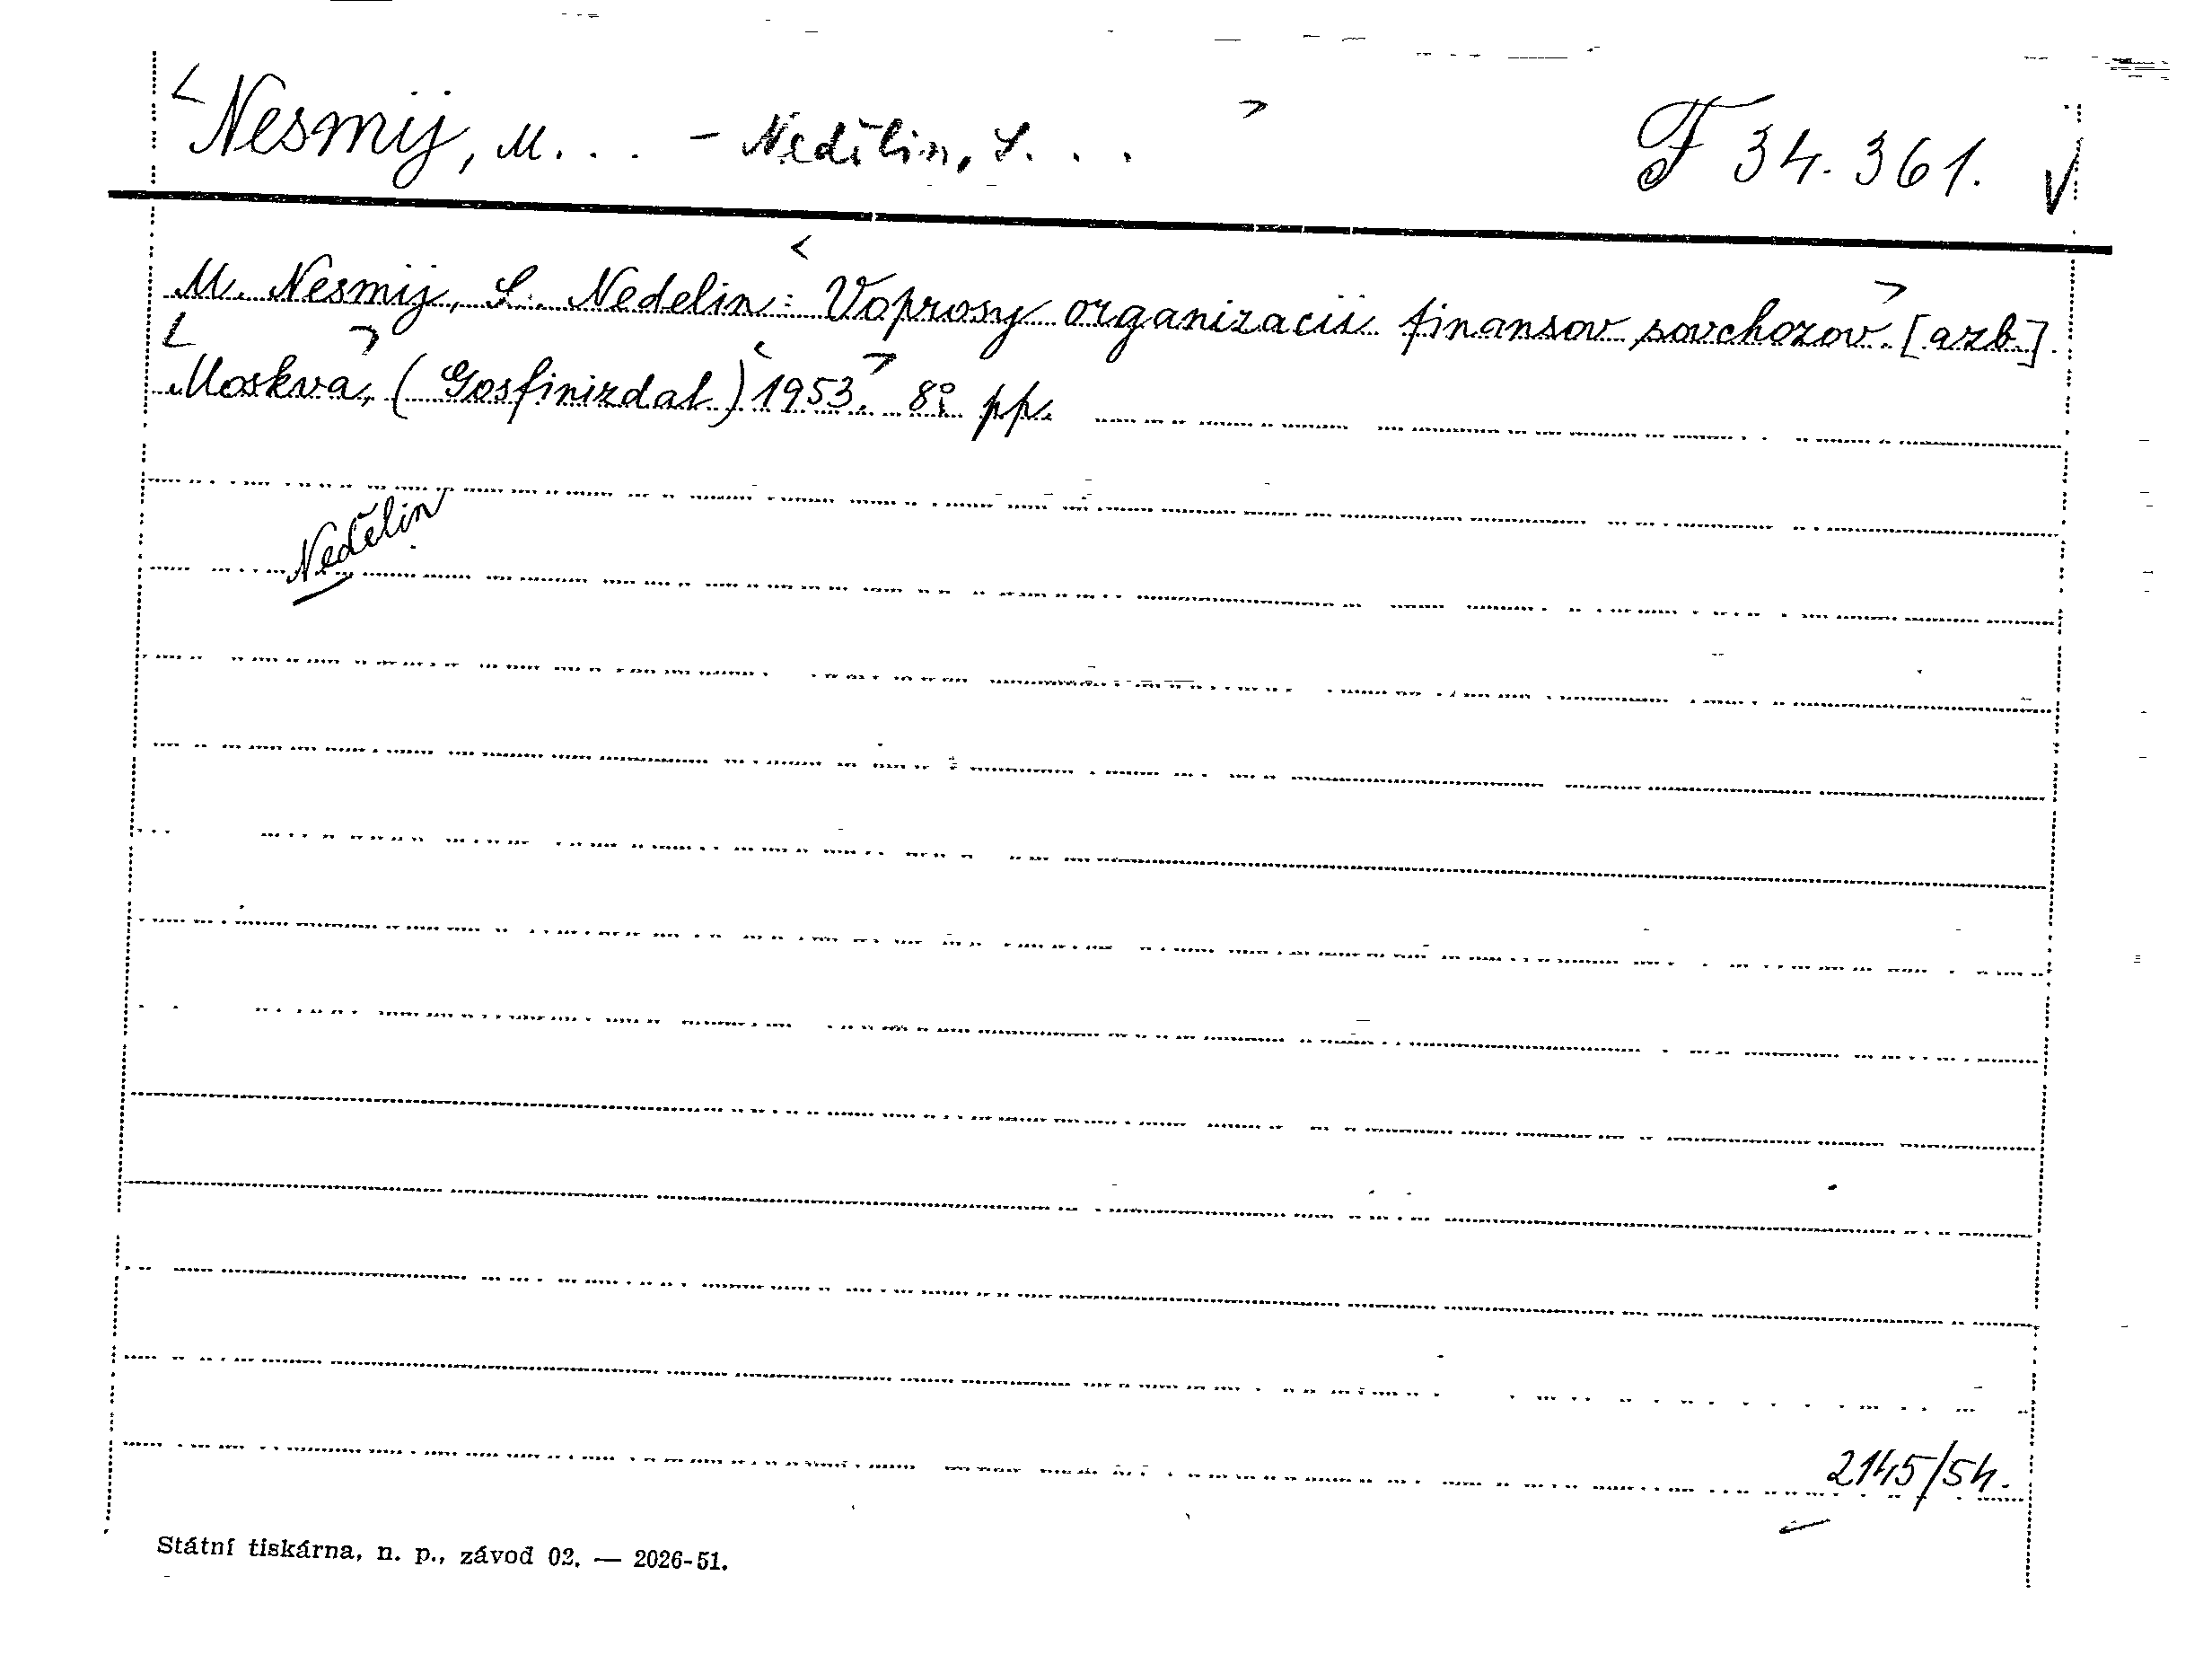 <Nesmij, M... - Nedělin, S...> F 34.361. √
M. Nesmij, S. Nedelin: <Voprosy organizacii finansov sovchozov>. [azb.].
<Moskva>, (Gosfinizdat) <1953.> 8° pp.
Nedělin
2145/54.
Státní tiskárna, n. p., závod 02. — 2026-51.